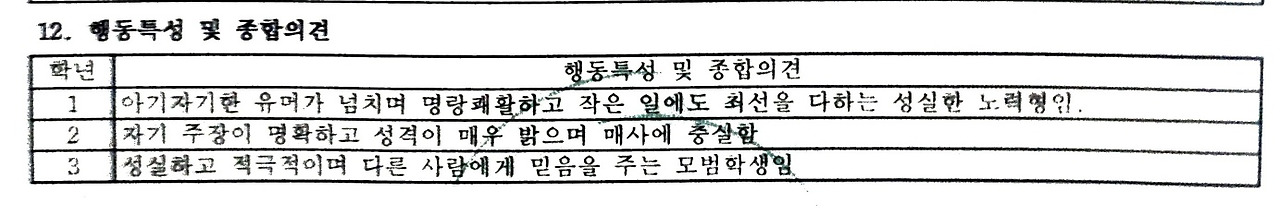 12. 행동특성 및 종합의견
학년 행동특성 및 종합의견
1 아기자기한 유머가 넘치며 명랑쾌활하고 작은 일에도 최선을 다하는 성실한 노력형임.
2 자기 주장이 명확하고 성격이 매우 밝으며 매사에 충실함
3 성실하고 적극적이며 다른 사람에게 믿음을 주는 모범학생임